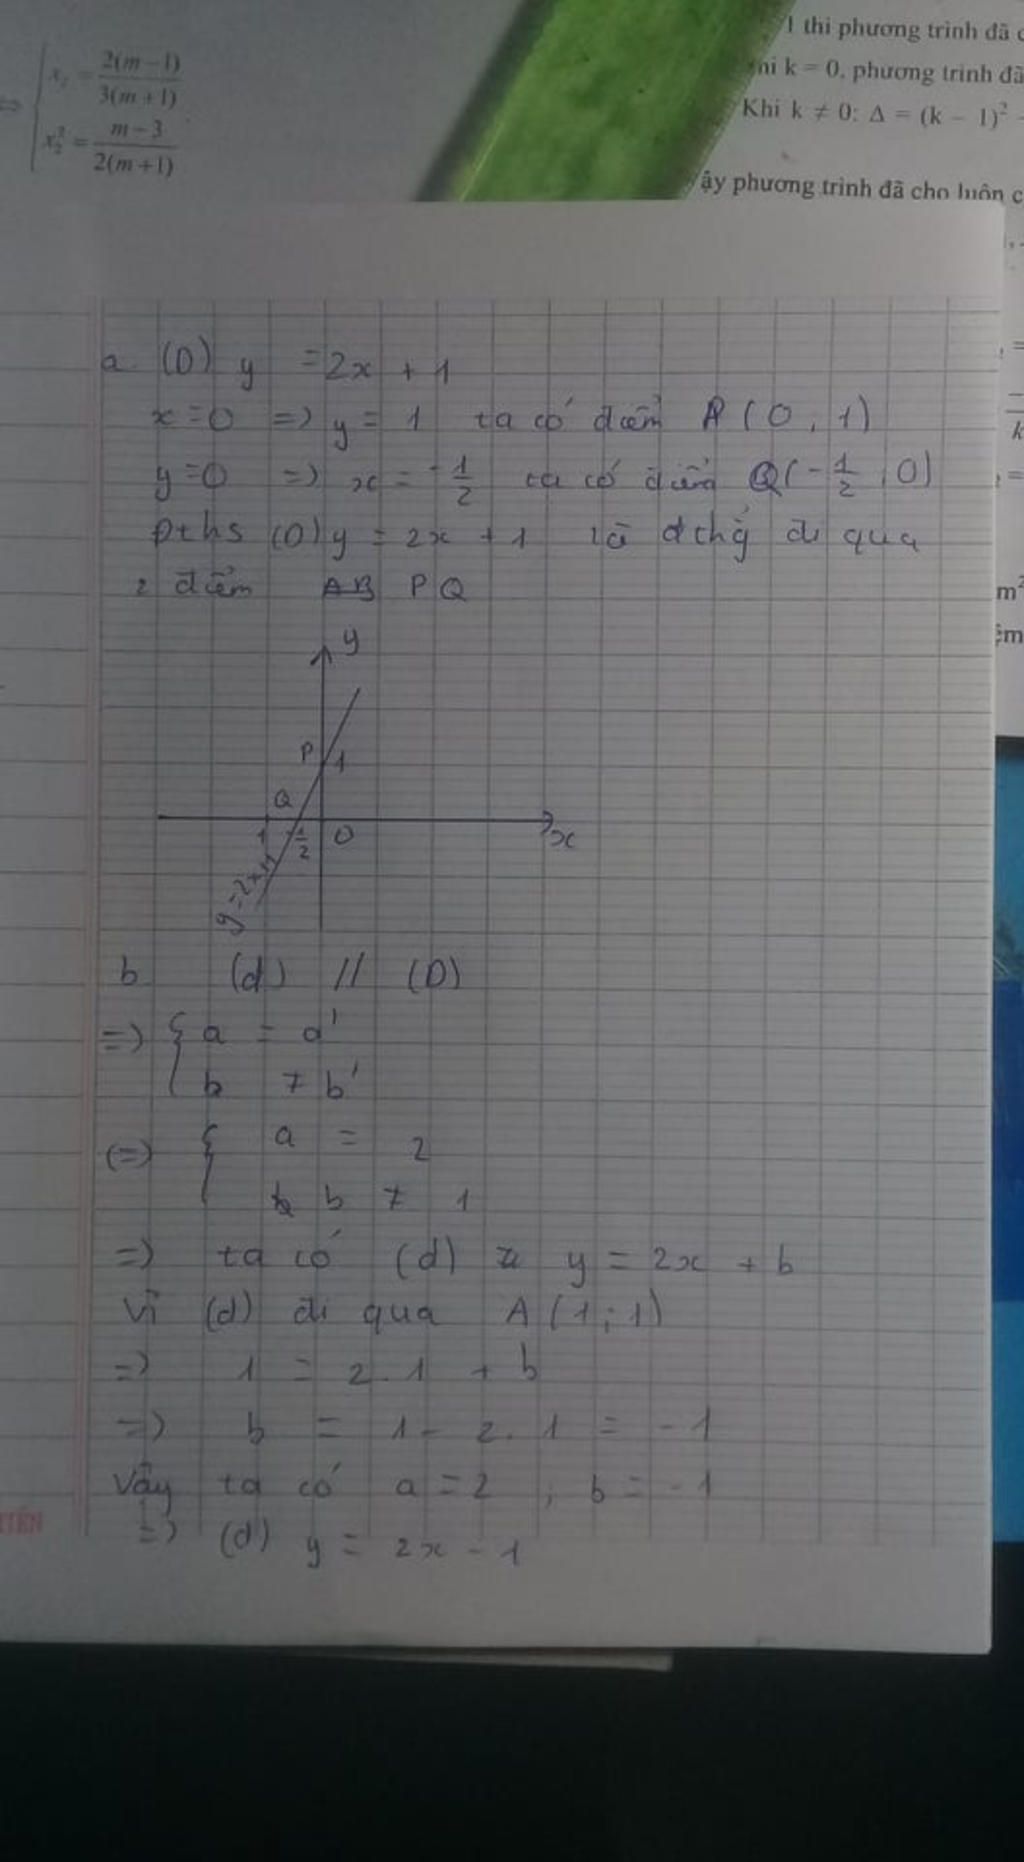 ⇔ { x₁ = 2(m−1)/3(m+1)
x₂² = m−3/2(m+1)
1 thì phương trình đã c
k = 0, phương trình đã
Khi k ≠ 0: Δ = (k − 1)² -
ậy phương trình đã cho luôn c
a. (D) y = 2x + 1
x = 0 => y = 1 ta có điểm P (0, 1)
y = 0 => x = -1/2 ta có điểm Q(-1/2; 0)
Đths (D) y = 2x + 1 là đ thẳng đi qua
2 điểm PQ
y
P 1
Q
1 1/2 O x
y = 2x+1
b (d) // (D)
=> { a = a'
b ≠ b'
(=) { a = 2
b ≠ 1
=> ta có (d) y = 2x + b
Vì (d) đi qua A (1; 1)
=> 1 = 2.1 + b
=> b = 1 - 2.1 = -1
Vậy ta có a = 2 ; b = -1
=> (d) y = 2x - 1
k
m²